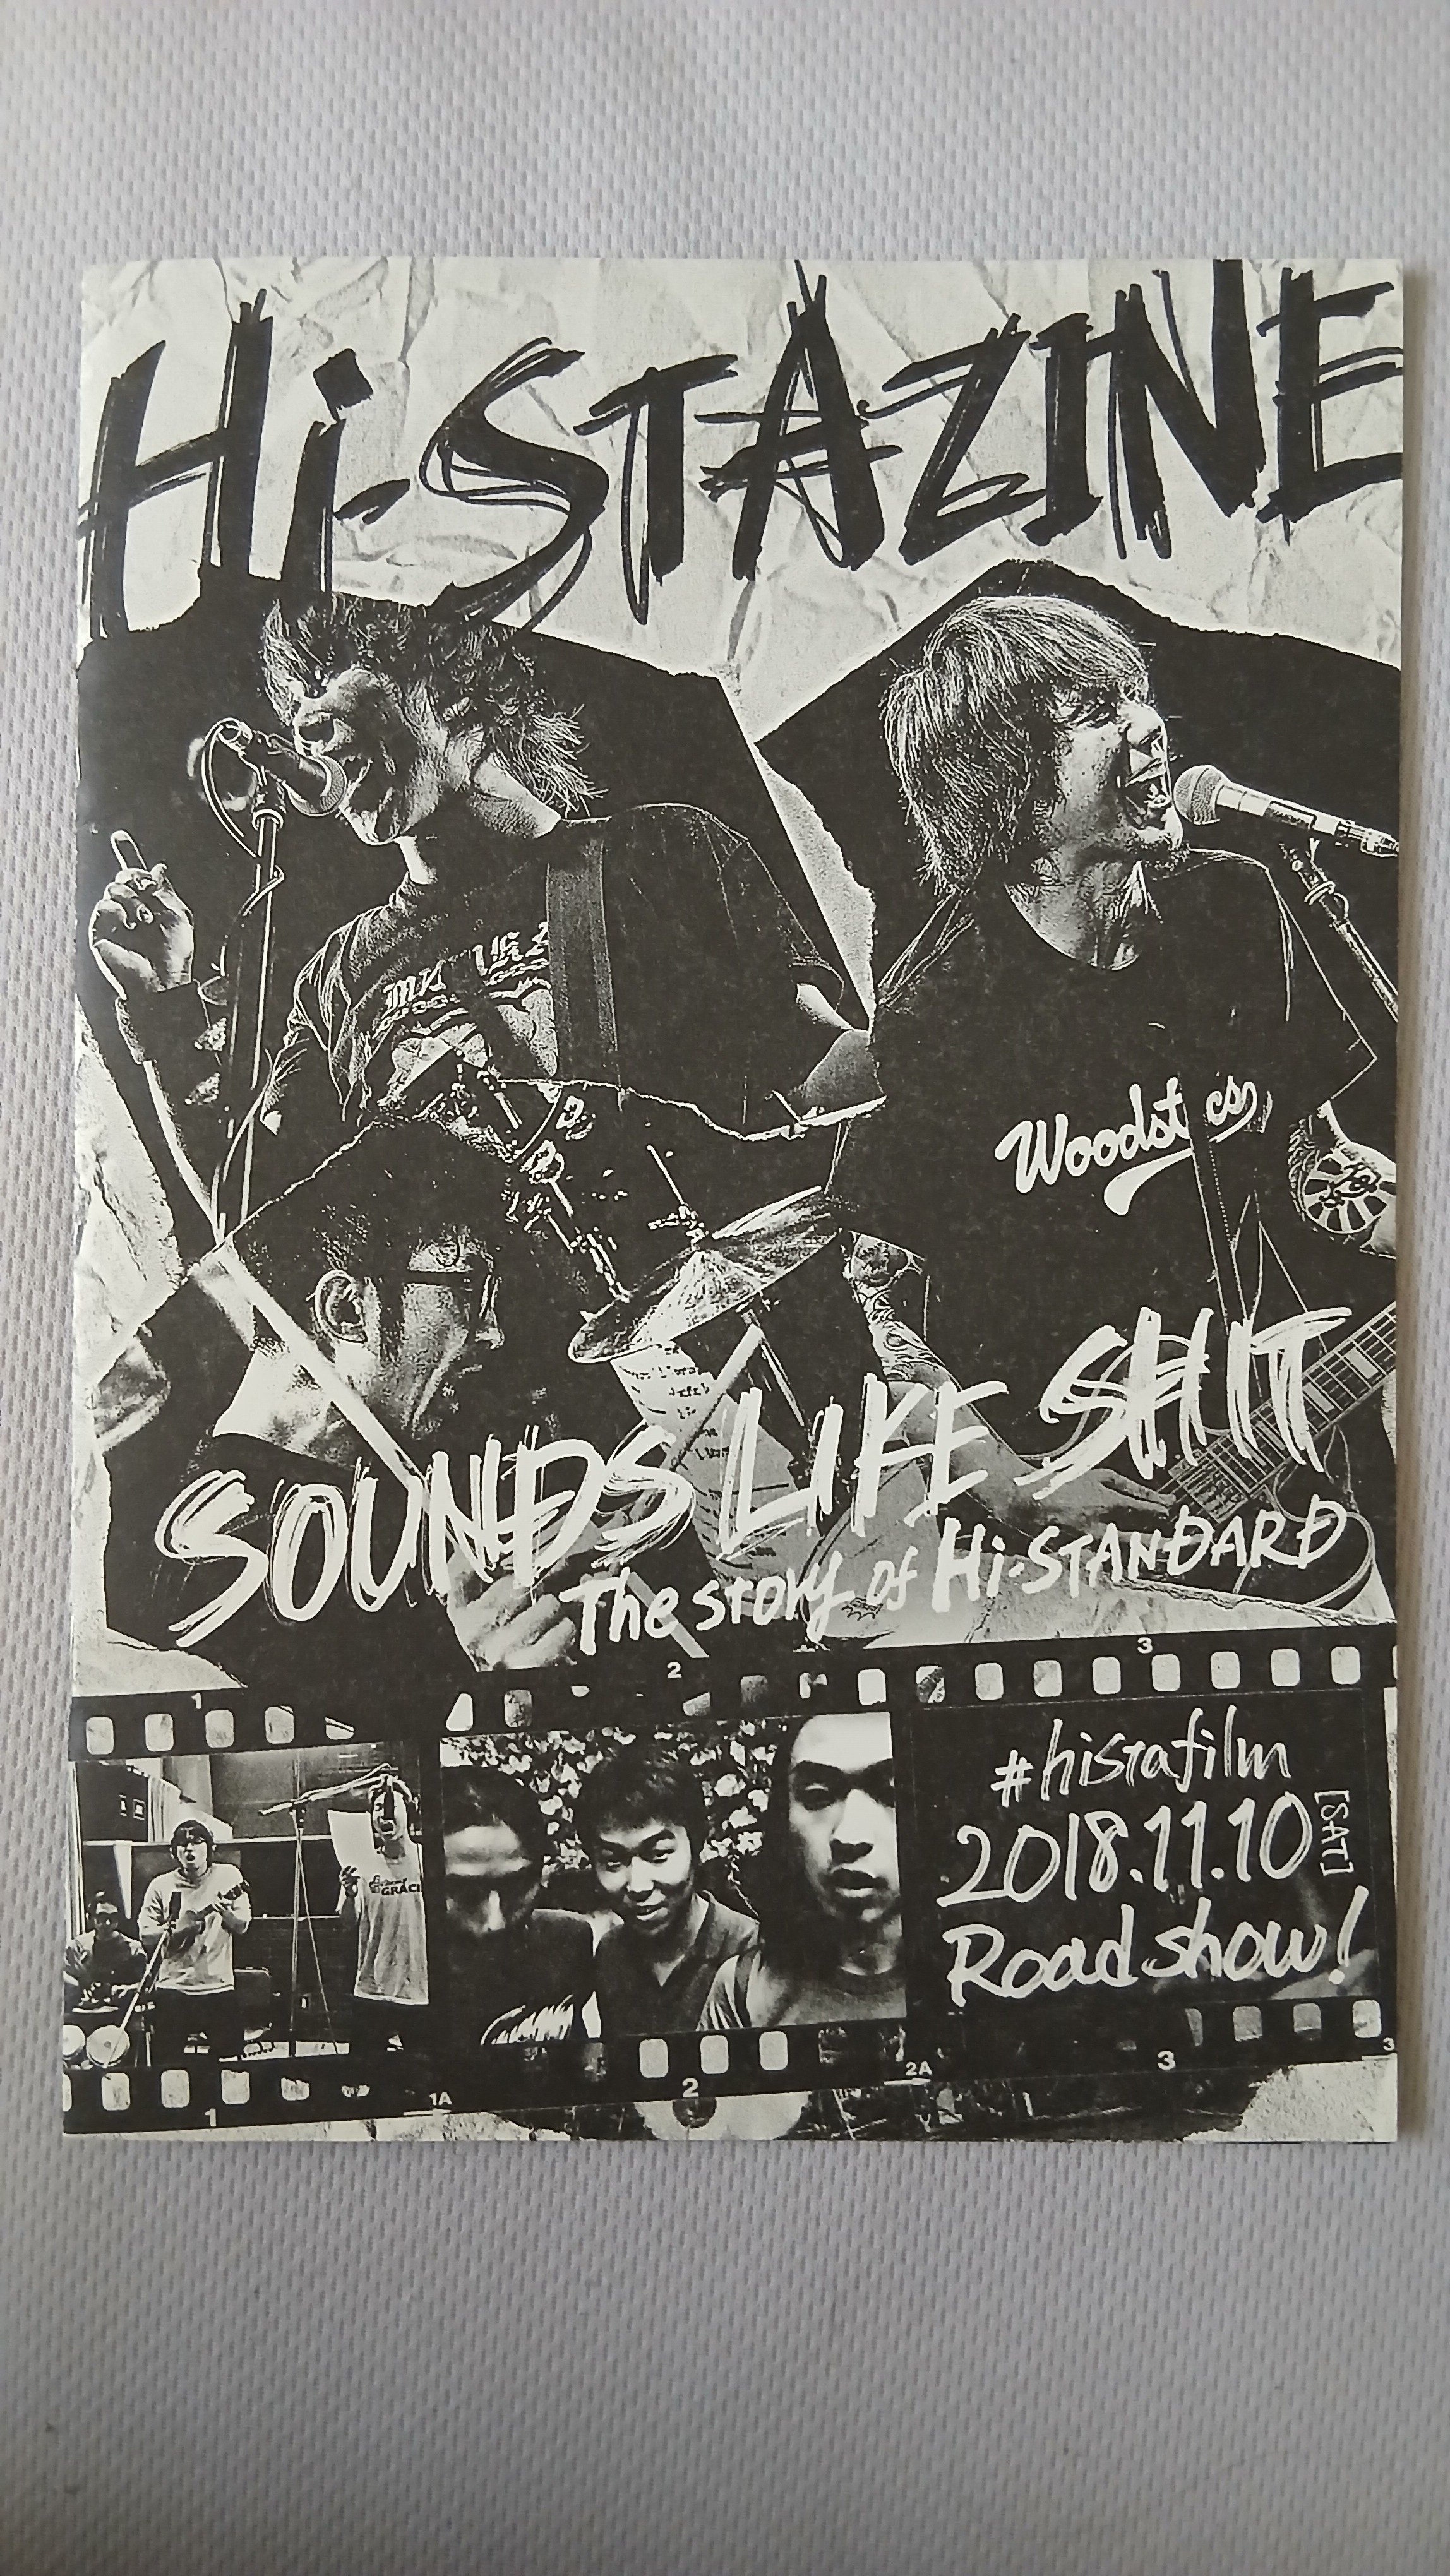 Hi-STAZINE
Woodst cs
SOUNDS LIKE SHIT
The story of Hi-STANDARD
2
3
1
#histafilm
2018.11.10 [SAT]
Road show!
GRACE
1
1A
2
2A
3
3